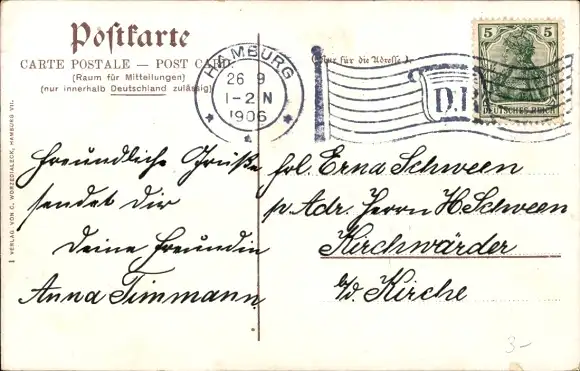 Postkarte
CARTE POSTALE — POST CARD
(Raum für Mitteilungen)
(nur innerhalb Deutschland zulässig)
Nur für die Adresse.
HAMBURG
26 9
1-2 N
1906
D.R.
5 5
DEUTSCHES REICH
1 VERLAG VON C. WORZEDIALECK, HAMBURG VII.
Freundliche Grüße
sendet Dir
Deine Freundin
Anna Timmann
Frl. Erna Schween
p. Adr. Herrn H. Schween
Kirchwärder
b/d. Kirche
3-